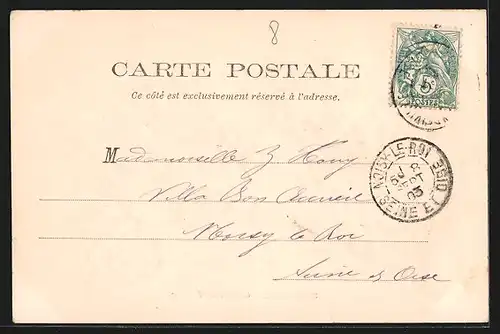 8
CARTE POSTALE
Ce côté est exclusivement réservé à l'adresse.
5c
POSTES
Mademoiselle
Villa Bon Accueil
Noisy le Roi
Seine & Oise
NOISY-LE-ROI
SEINE ET OISE
03